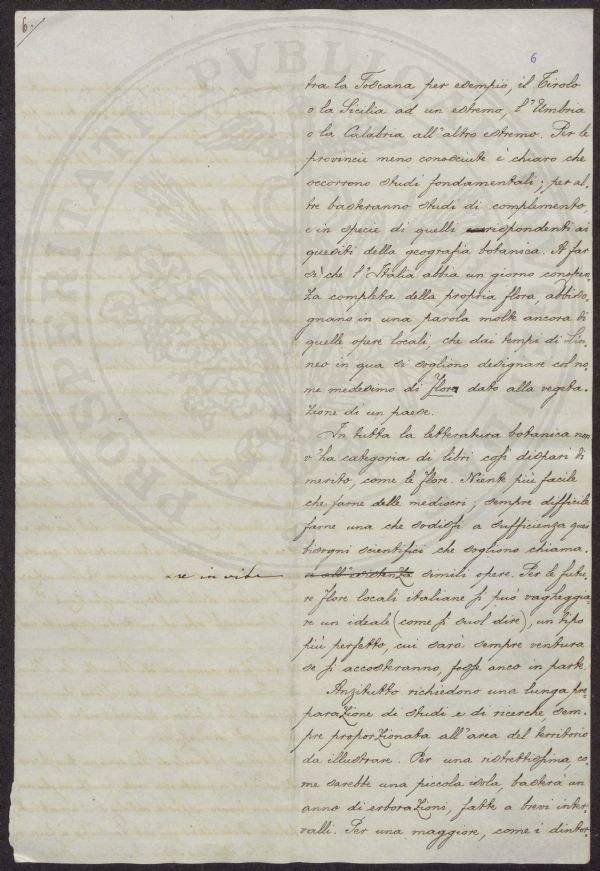 6.
6
tra la Toscana per esempio, il Tirolo
o la Sicilia ad un estremo, l'Umbria
o la Calabria all'altro estremo. Per le
provincie meno conosciute è chiaro che
occorrono studi fondamentali; per al-
tre basteranno studi di complemento,
e in specie di quelli rispondenti ai
quesiti della geografia botanica. A far
sì che l'Italia abbia un giorno conoscen-
za completa della propria flora, abbiso-
gnano in una parola molte ancora di
quelle opere locali, che dai tempi di Lin-
neo in qua si sogliono designare col no-
me medesimo di Flora dato alla vegeta-
zione di un paese.
In tutta la letteratura botanica non
v'ha categoria di libri così dispari di
merito, come le flore. Niente più facile
che farne delle mediocri; sempre difficile
farne una che sodisfi a sufficienza quei
bisogni scientifici che sogliono chiama-
re in vita
re all'esistenza simili opere. Per le futu-
re flore locali italiane si può vagheggia-
re un ideale (come si suol dire), un tipo
più perfetto, cui sarà sempre ventura
se si accosteranno, fosse anco in parte.
Anzitutto richiedono una lunga pre-
parazione di studi e di ricerche, sem-
pre proporzionata all'area del territorio
da illustrare. Per una ristrettissima, co-
me sarebbe una piccola isola, basterà un
anno di erborazioni, fatte a brevi inter-
valli. Per una maggiore, come i dintor-
PROSPERITATI PVBLICAE